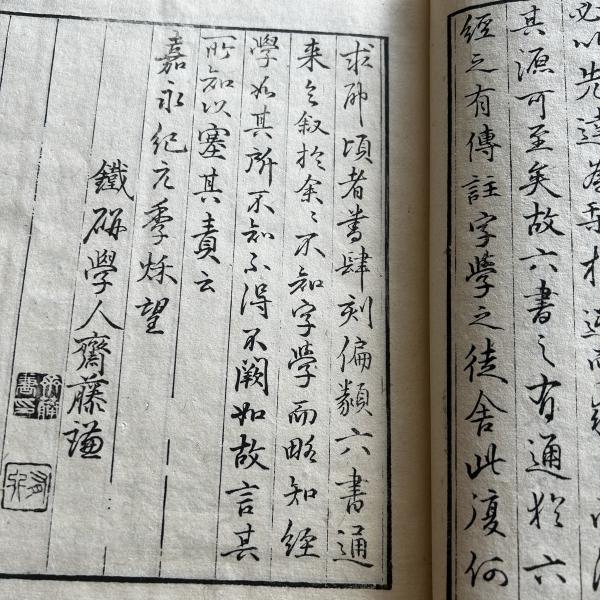 必以先達為
其源可至矣故六書之有通於六
經之有傳註字學之徒舍此復何
求耶頃者書肆刻偏類六書通
来乞叙於余〻不知字學而略知經
學如其所不知不得不闕如故言其
所知以塞其責云
嘉永紀元季秋望
鐵研學人齋藤謙